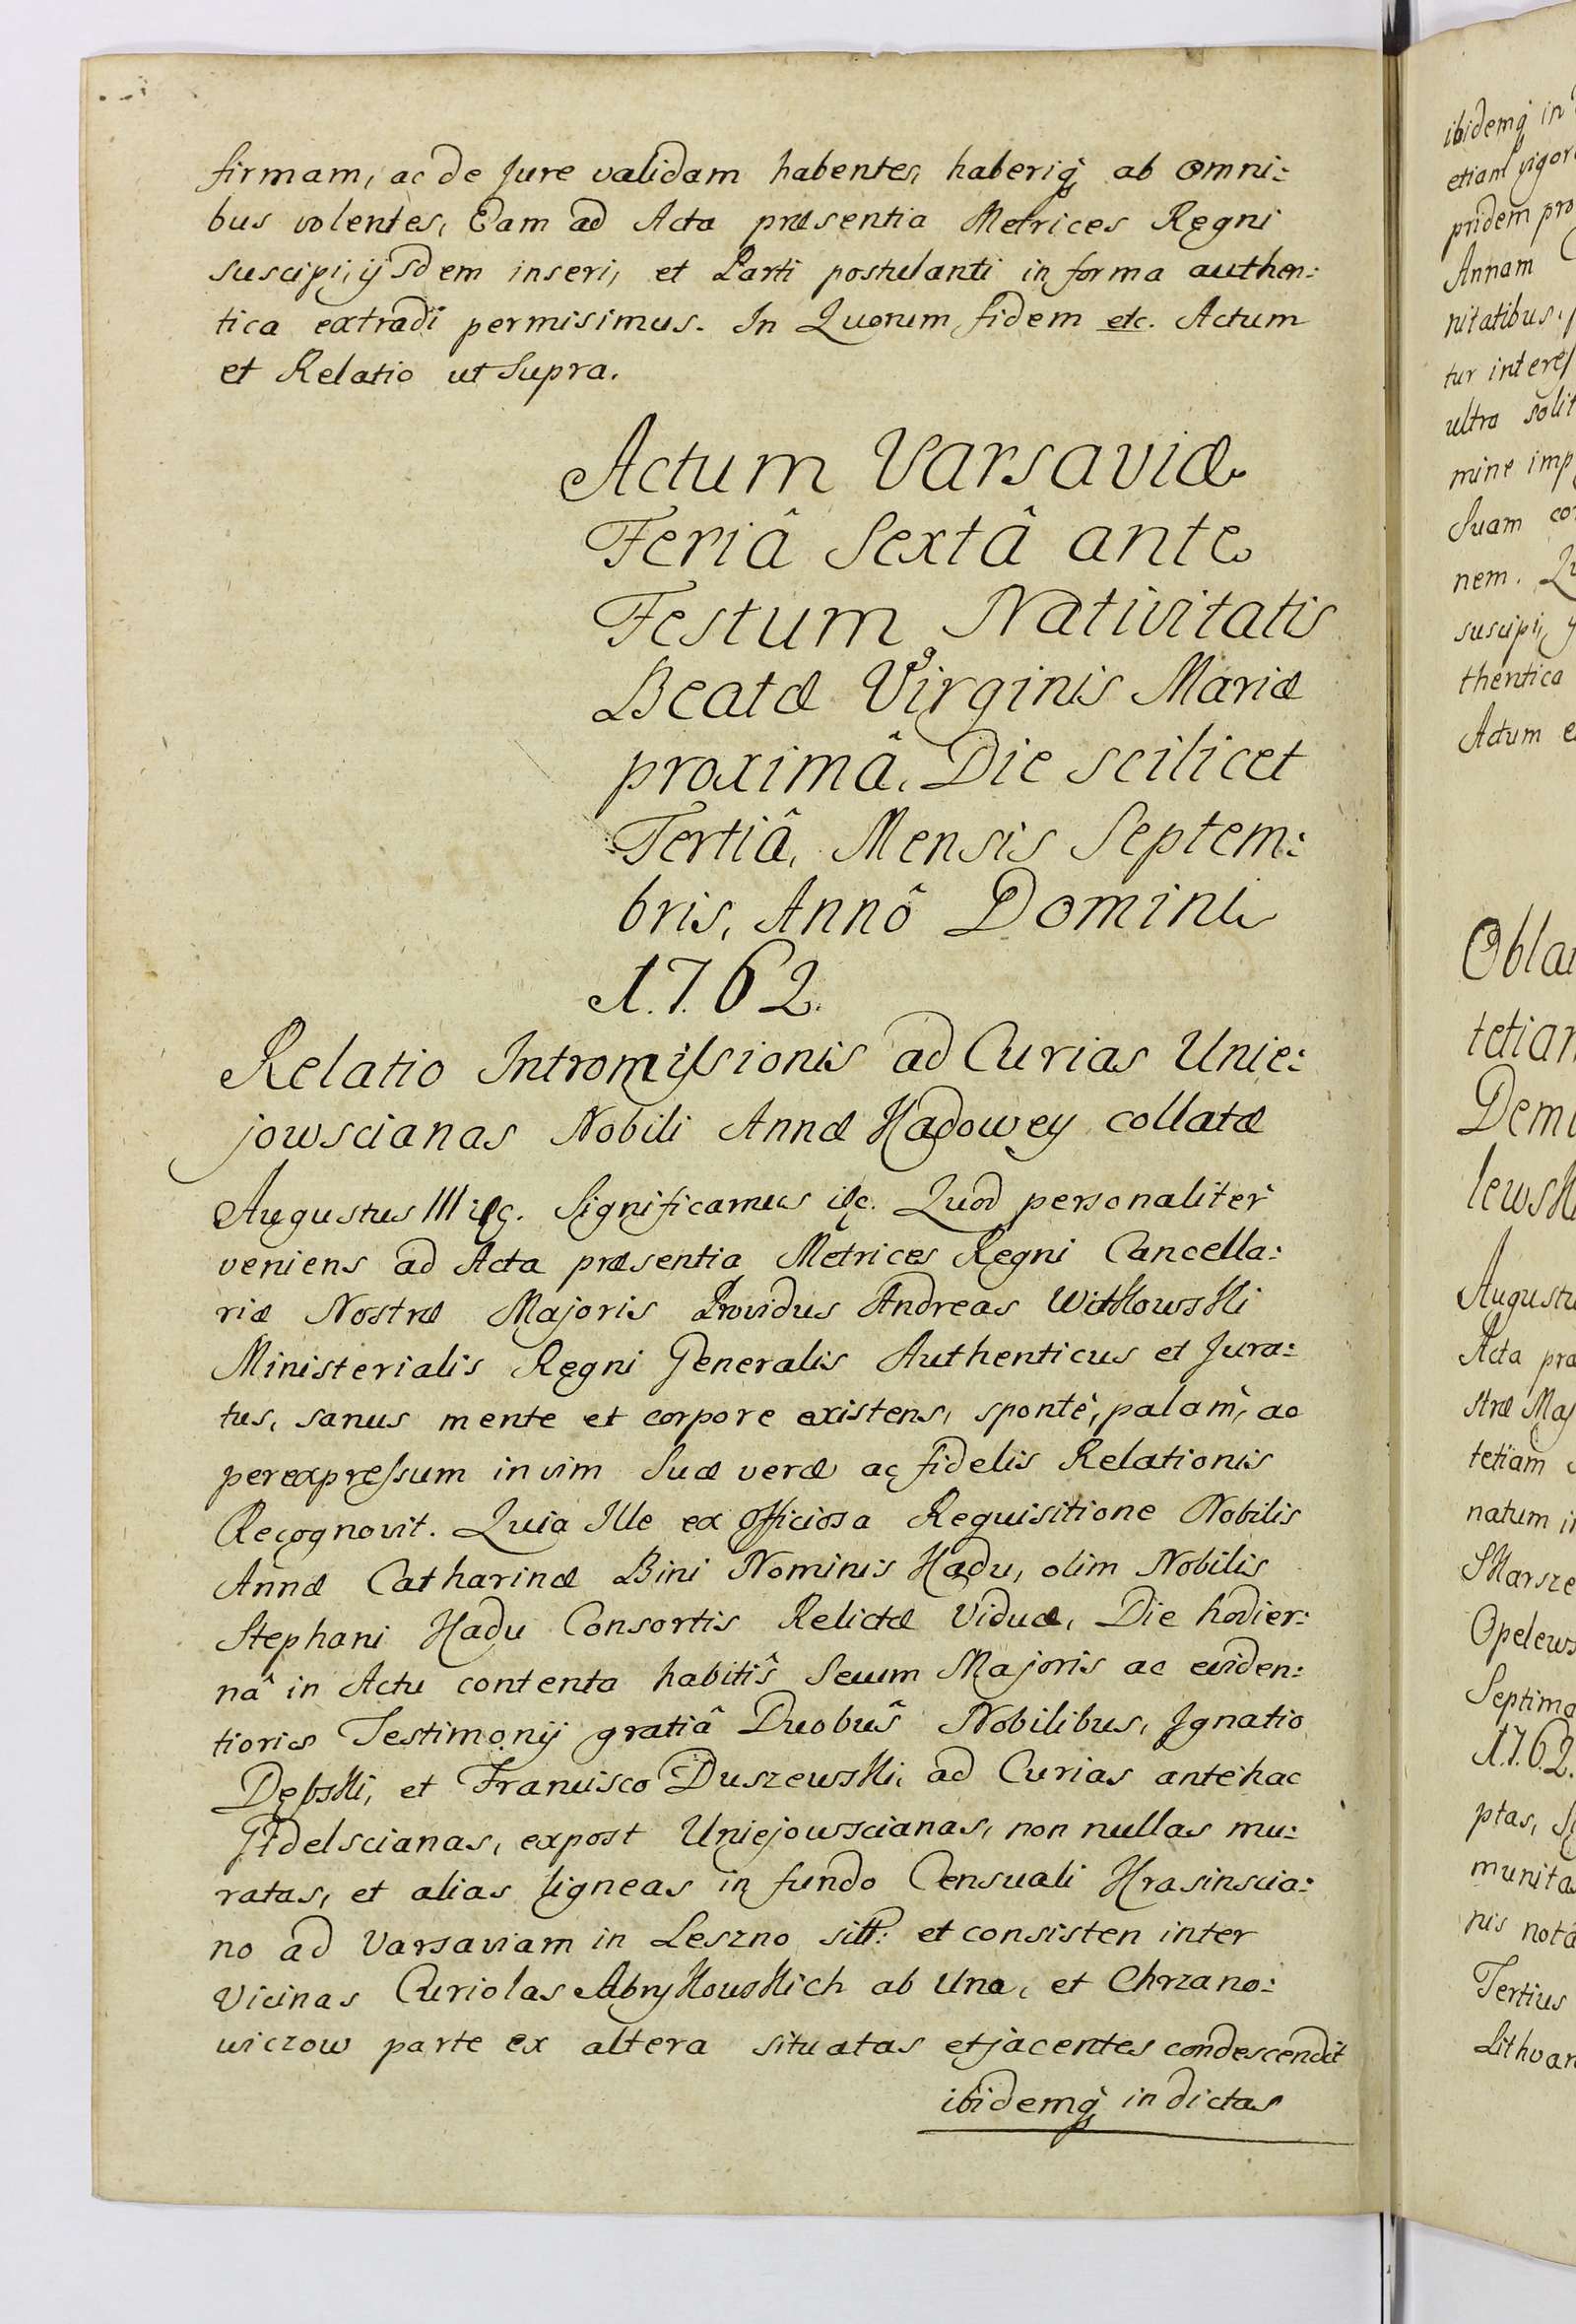 firmam, ac de Jure validam habentes, haberiq́ ab omni:
bus volentes, Eam ad Acta præsentia Metrices Regni
suscipi, ijsdem inseri, et Parti postulanti in forma authen:
tica extradi permisimus. In Quorum fidem etc. Actum
et Relatio ut Supra.
Actum Varsaviæ
Feriâ Sextâ ante
Festum Nativitatis
Beatæ Virginis Mariæ
proximâ, Die scilicet
Tertiâ, Mensis Septem:
bris, Annô Domini
1762.
Relatio Intromissionis ad Curias Unie:
jowscianas Nobili Annæ Hadowey collatæ
Augustus III etc. Significamus etc. Quod personaliter
veniens ad Acta præsentia Metrices Regni Cancella:
riæ Nostræ Majoris Providus Andreas Witkowski
Ministerialis Regni Generalis Authenticus et Jura:
tus, sanus mente et corpore existens, spontè, palam, ac
perexpressum in vim Suæ veræ ac fidelis Relationis
Recognovit. Quia Ille ex Officiosa Requisitione Nobilis
Annæ Catharinæ Bini Nominis Hadu, olim Nobilis
Stephani Hadu Consortis Relictæ Viduæ, Die hodier:
nâ in Actu contenta habitîs Secum Majoris ac eviden:
tioris Testimonij gratiâ Duobûs Nobilibus, Ignatio
Dębski, et Francisco Duszewski, ad Curias antehac
Gidelscianas, expost Uniejowscianas, non nullas mu:
ratas, et alias ligneas in fundo Censuali Krasinscia:
no ad Varsaviam in Leszno sitt: et consisten inter
Vicinas Curiolas Abrykowskich ab Una, et Chrzano:
wiczow parte ex altera situatas et jacentes condescendit
ibidemq́ in dictas
ibidemq́ in
etiam vigor
pridem pro
Annam
nitatibus,
tur interes
ultra solit
mine imp
Suam co
nem. Qu
suscipi,
thentica
Actum e
Obla
tetian
Dem
lewsk
Augustu
Acta pra
stræ Maj
tetiam
natum i
Skarsze
Opelews
Septima
1762.
ptas,
munita
nis nota
Tertius
Lithuan